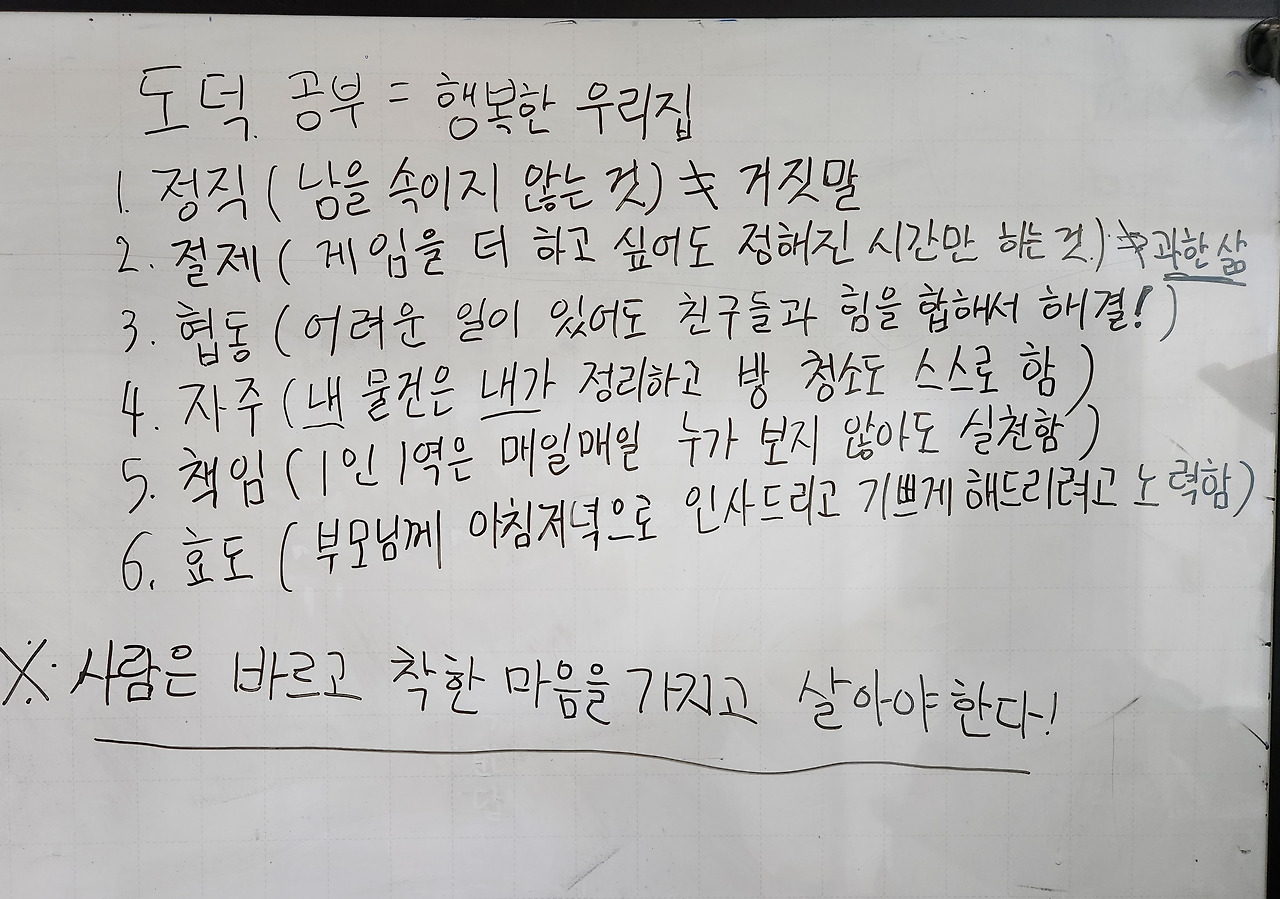 도덕 공부 = 행복한 우리집
1. 정직 ( 남을 속이지 않는 것) ≠ 거짓말
2. 절제 ( 게임을 더 하고 싶어도 정해진 시간만 하는 것.) ≠ 과한 삶
3. 협동 ( 어려운 일이 있어도 친구들과 힘을 합해서 해결! )
4. 자주 ( 내 물건은 내가 정리하고 방 청소도 스스로 함 )
5. 책임 ( 1인 1역은 매일매일 누가 보지 않아도 실천함 )
6. 효도 ( 부모님께 아침저녁으로 인사드리고 기쁘게 해드리려고 노력함 )
※ 사람은 바르고 착한 마음을 가지고 살아야 한다!